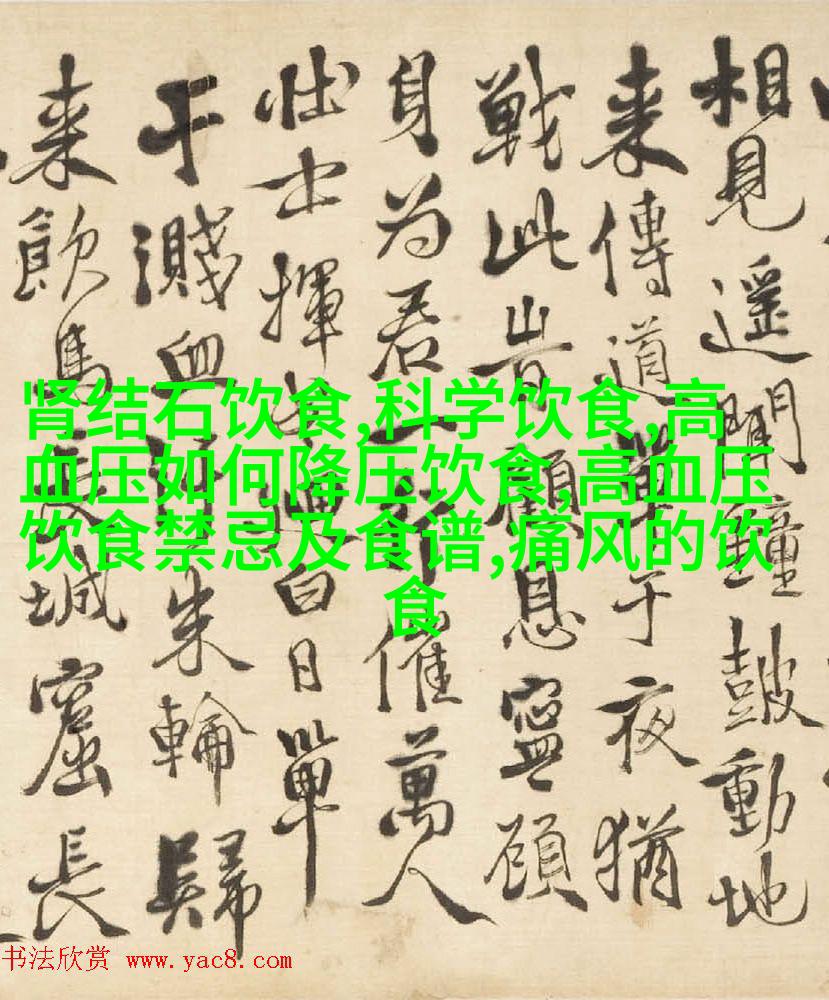 相見遥聞鼓動地
来傳道單于夜猶
戰此旹顧恩寧顧
身為君一行催萬人
壮士揮戈迴白日單
于濺血朱輪歸
来飲馬長城窟長
肾结石饮食,科学饮食,高
血压如何降压饮食,高血压
饮食禁忌及食谱,痛风的饮
食
书法欣赏 www.yac8.com